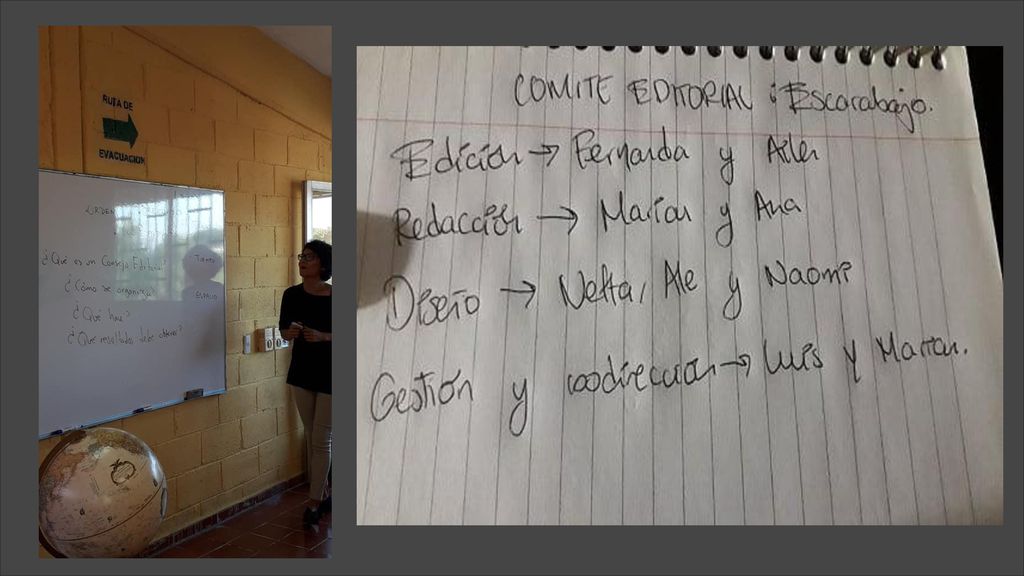 RUTA DE
EVACUACION
ORDEN
¿Qué es un Consejo Editorial?
¿Cómo se organiza?
¿Qué hace?
¿Qué resultados debe obtener?
TIEMPO
ESPACIO
COMITE EDITORIAL : Escarabajo.
Edición → Fernanda y Ailen
Redacción → Marian y Ana
Diseño → Nelta, Ale y Naomi
Gestión y coodirección → Luis y Marian.